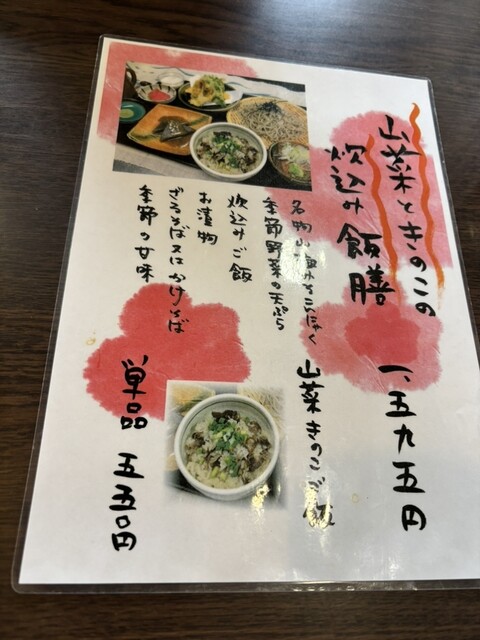 山菜ときのこの
炊込み飯膳
一、五九五円
名物山
こんにゃく
季節野菜の天ぷら
炊込みご飯
お漬物
ざるそば又はかけそば
季節の甘味
山菜きのこご飯
単品 五五〇円